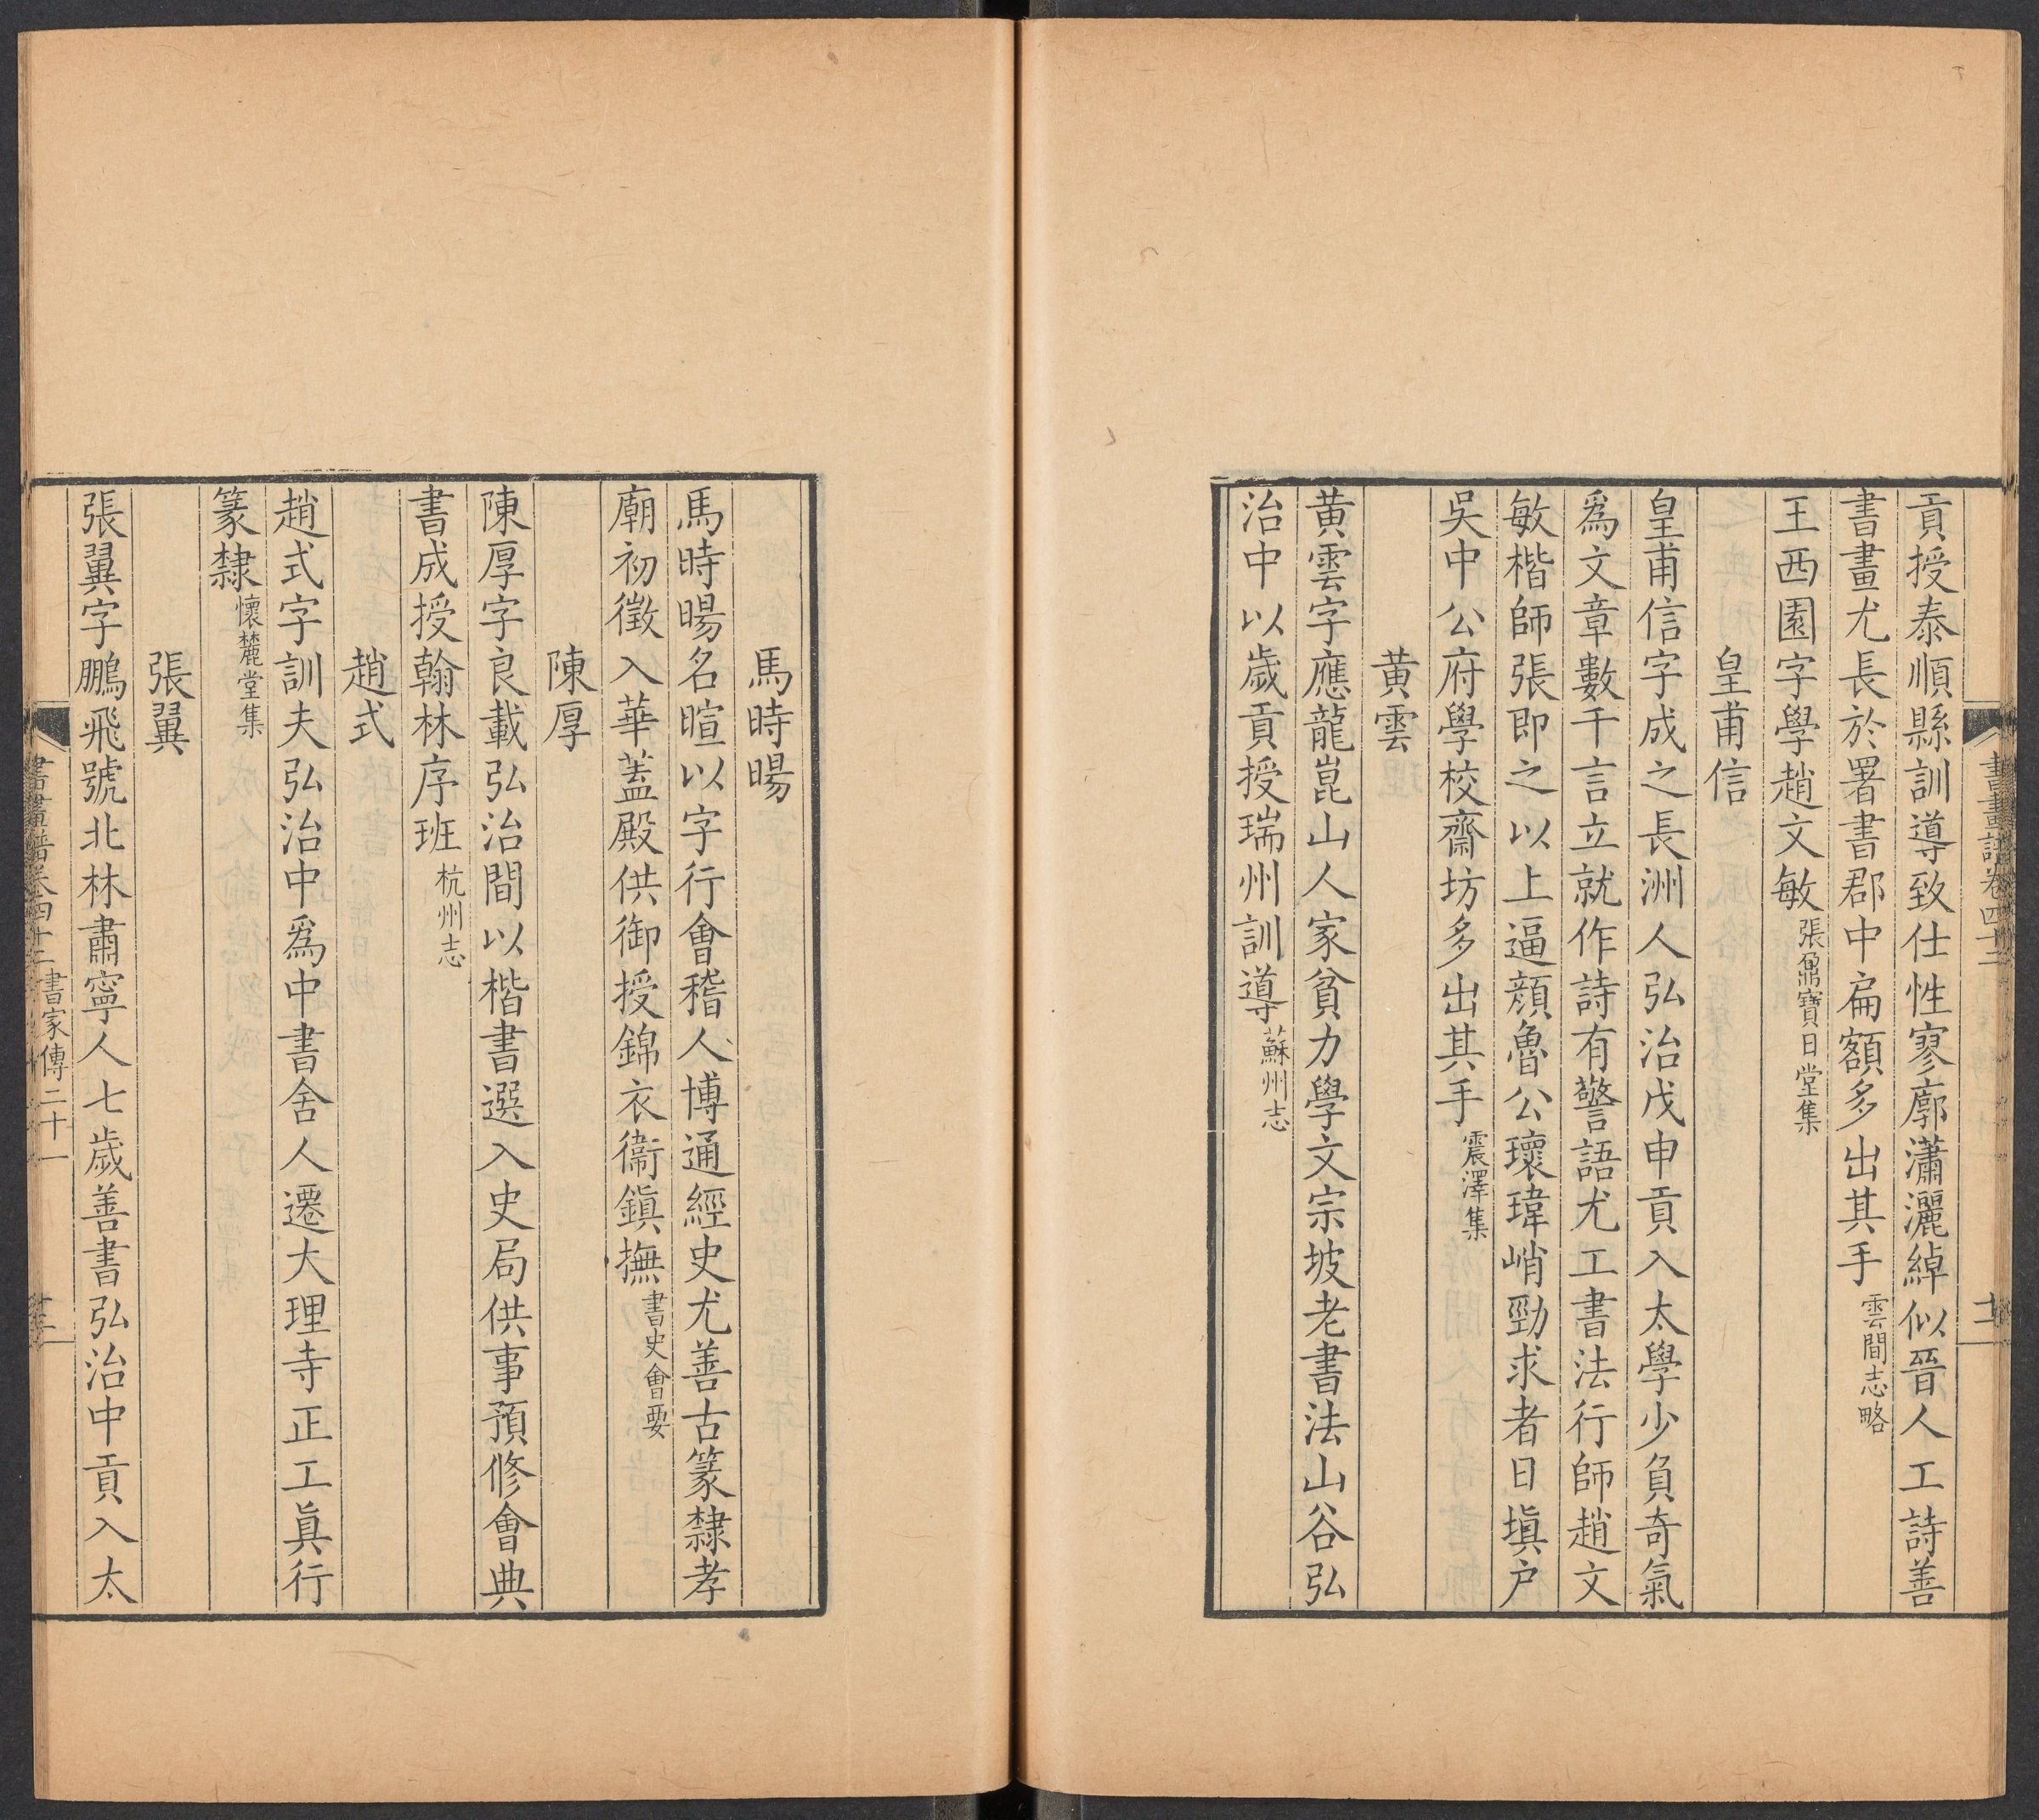 書畫譜卷四十二
貢授泰順縣訓導致仕性寥廓瀟灑綽似晉人工詩善
書畫尤長於署書郡中扁額多出其手雲間志略
王西園字學趙文敏張鼐寶日堂集
皇甫信
皇甫信字成之長洲人弘治戊申貢入太學少負奇氣
爲文章數千言立就作詩有警語尤工書法行師趙文
敏楷師張即之以上逼顏魯公瓌瑋峭勁求者日塡户
吳中公府學校齋坊多出其手震澤集
黃雲
黃雲字應龍崑山人家貧力學文宗坡老書法山谷弘
治中以歲貢授瑞州訓導蘇州志
馬時暘
馬時暘名暄以字行會稽人博通經史尤善古篆隸孝
廟初徵入華蓋殿供御授錦衣衞鎭撫書史會要
陳厚
陳厚字良載弘治間以楷書選入史局供事預修會典
書成授翰林序班杭州志
趙式
趙式字訓夫弘治中爲中書舍人遷大理寺正工眞行
篆隸懷麓堂集
張翼
張翼字鵬飛號北林肅寧人七歲善書弘治中貢入太
書畫譜卷四十二 書家傳二十一